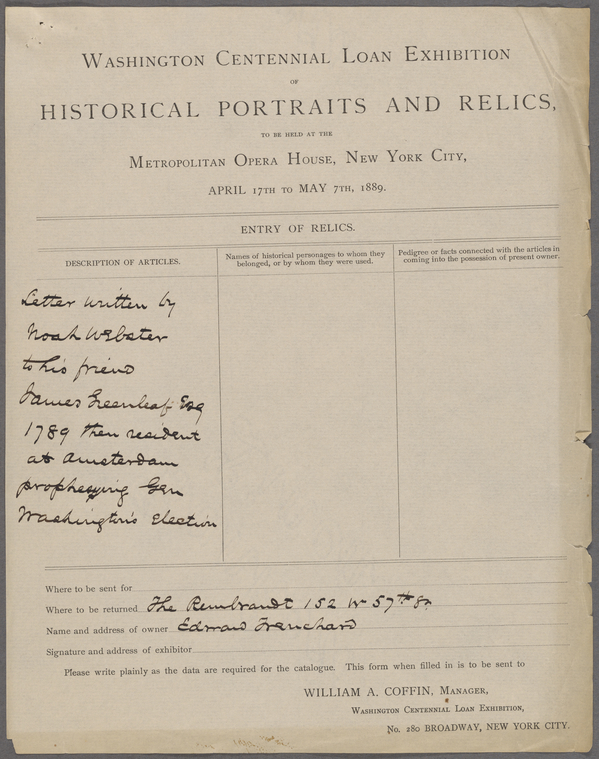 Washington Centennial Loan Exhibition
OF
HISTORICAL PORTRAITS AND RELICS,
TO BE HELD AT THE
Metropolitan Opera House, New York City,
APRIL 17TH TO MAY 7TH, 1889.
ENTRY OF RELICS.
DESCRIPTION OF ARTICLES.
Names of historical personages to whom they
belonged, or by whom they were used.
Pedigree or facts connected with the articles in
coming into the possession of present owner.
Letter written by
Noah Webster
to his friend
James Greenleaf Esq
1789 then resident
at Amsterdam
prophesying Gen
Washington's Election
Where to be sent for
Where to be returned The Rembrandt 152 W 57th St.
Name and address of owner Edward Trenchard
Signature and address of exhibitor
Please write plainly as the data are required for the catalogue. This form when filled in is to be sent to
WILLIAM A. COFFIN, Manager,
Washington Centennial Loan Exhibition,
No. 280 BROADWAY, NEW YORK CITY.